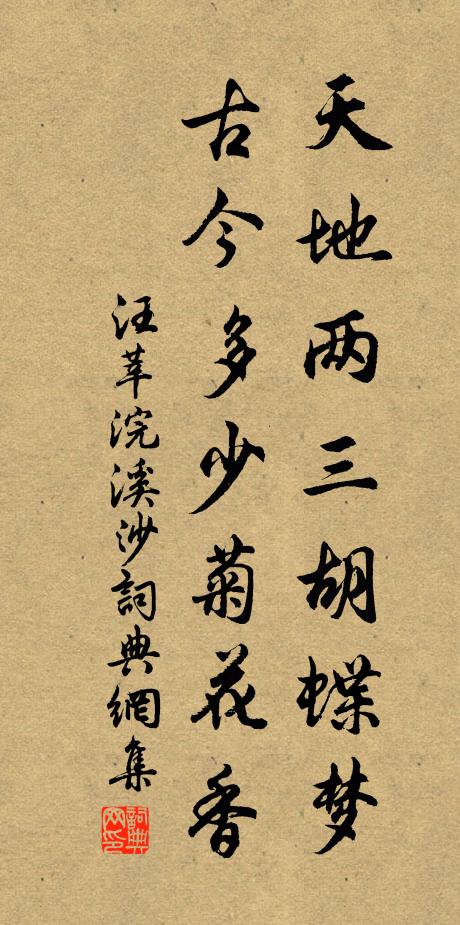 天地两三胡蝶梦
古今多少菊花香
汪莘浣溪沙詞典網集
詞典网印